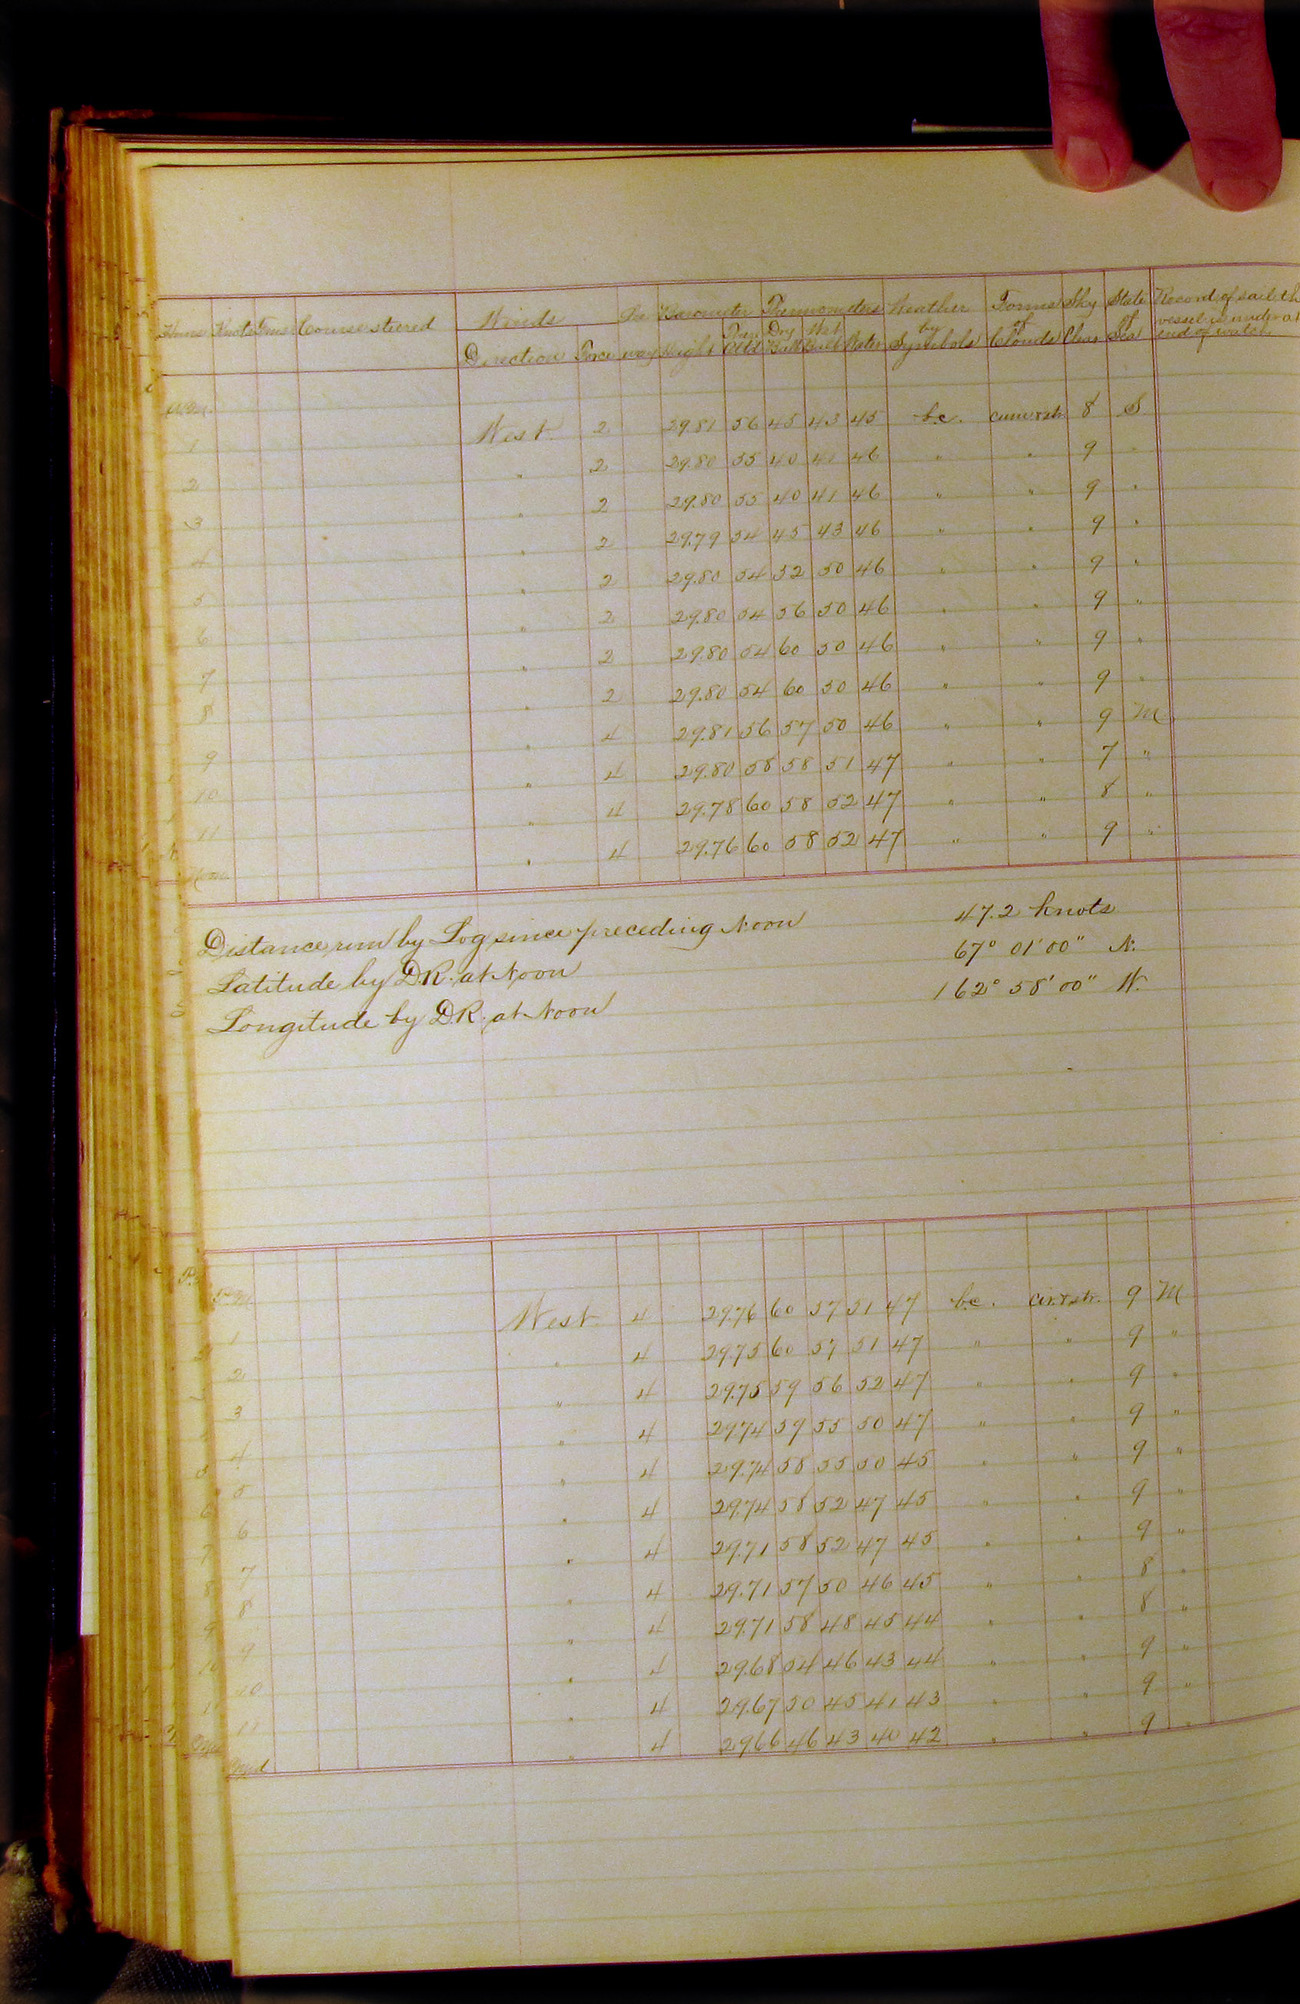 Hours Knots Tens Course steered Winds Lee Barometer Thermometers Weather Forms Sky State Record of sail the
Direction Force way Height Ther. Att'd Dry Bulb Wet Bulb Water by Symbols of Clouds Clear of Sea vessel is under at
end of watch
A.M.
1 West 2 29.81 56 45 43 45 b.c. cum & str 8 S
2 " 2 29.80 55 40 41 46 " " 9 "
3 " 2 29.80 55 40 41 46 " " 9 "
4 " 2 29.79 54 45 43 46 " " 9 "
5 " 2 29.80 54 52 50 46 " " 9 "
6 " 2 29.80 54 56 50 46 " " 9 "
7 " 2 29.80 54 60 50 46 " " 9 "
8 " 2 29.80 54 60 50 46 " " 9 "
9 " 4 29.81 56 57 50 46 " " 9 M
10 " 4 29.80 58 58 51 47 " " 7 "
11 " 4 29.78 60 58 52 47 " " 8 "
Noon " 4 29.76 60 58 52 47 " " 9 "
Distance run by Log since preceding Noon 47.2 knots
Latitude by D.R. at Noon 67° 01' 00" N.
Longitude by D.R. at Noon 162° 58' 00" W.
P.M.
1 West 4 29.76 60 57 51 47 b.c. cir. & str. 9 M
2 " 4 29.75 60 57 51 47 " " 9 "
3 " 4 29.75 59 56 52 47 " " 9 "
4 " 4 29.74 59 55 50 47 " " 9 "
5 " 4 29.74 58 55 50 45 " " 9 "
6 " 4 29.74 58 52 47 45 " " 9 "
7 " 4 29.71 58 52 47 45 " " 9 "
8 " 4 29.71 57 50 46 45 " " 8 "
9 " 4 29.71 58 48 45 44 " " 8 "
10 " 4 29.68 54 46 43 44 " " 9 "
11 " 4 29.67 50 45 41 43 " " 9 "
Mid " 4 29.66 46 43 40 42 " " 9 "